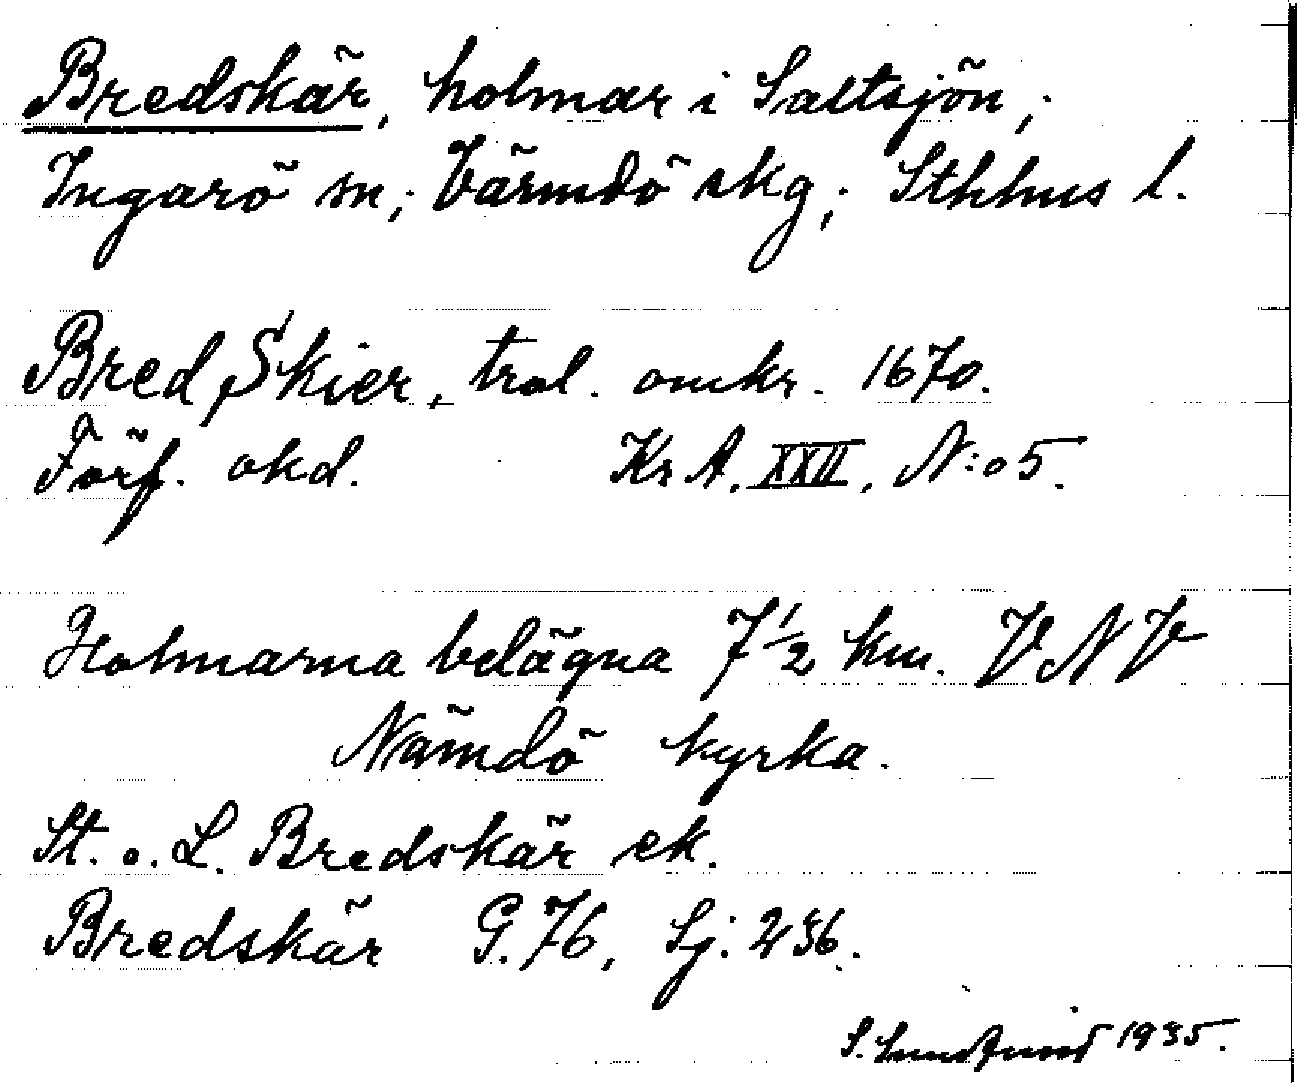 Bredskär, holmar i Saltsjön,
Ingarö sn; Värmdö skg; Sthlms l.
Bred Skier, trol. omkr. 1670.
Förf. okd. Kr A. XXII, N:o 5.
Holmarna belägna 7 1/2 km. VNV
Nämdö kyrka.
St. o. L. Bredskär ek.
Bredskär G. 76, Sj: 236.
S. 1935.